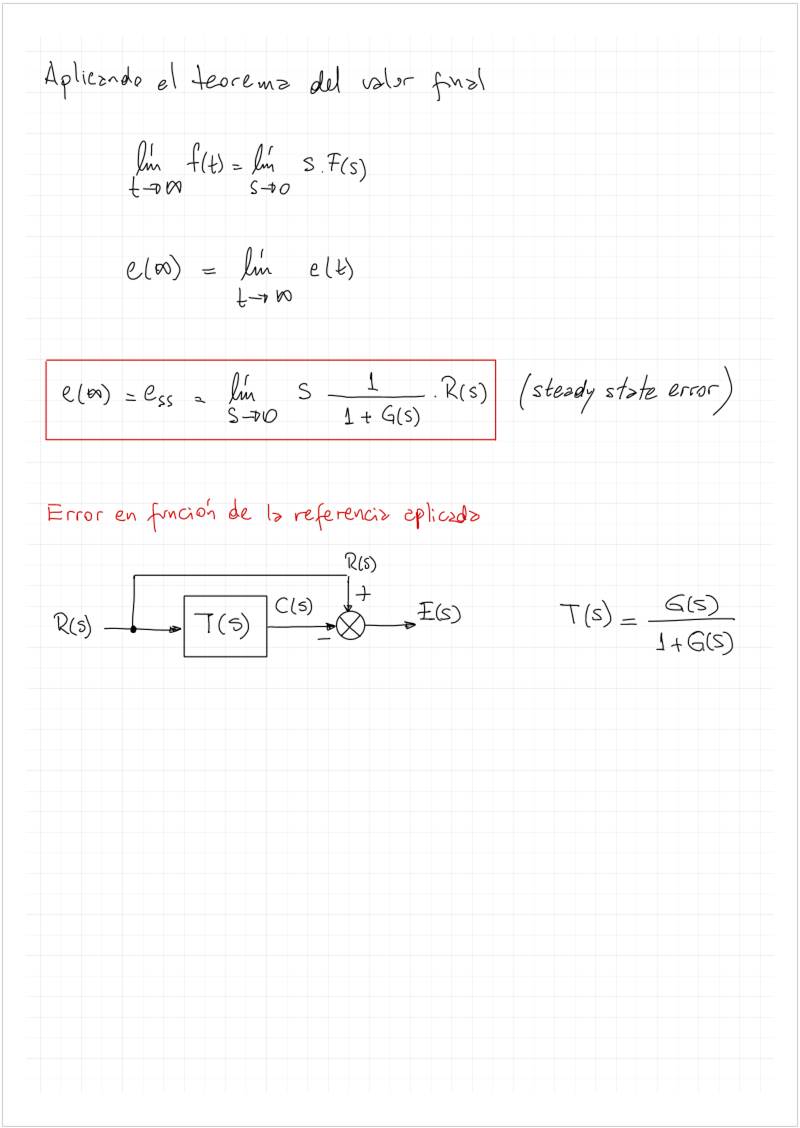 Aplicando el teorema del valor final
lím f(t) = lím s.F(s)
t→∞ s→0
e(∞) = lím e(t)
t→∞
e(∞) = ess = lím s 1/(1 + G(s)) . R(s) (steady state error)
s→0
Error en función de la referencia aplicada
R(s)
R(s) T(s) C(s) + − E(s) T(s) = G(s)/(1 + G(s))